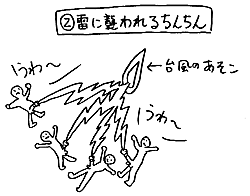 ②雷に襲われるちんちん
うわ〜
←台風のあそこ
うわ〜